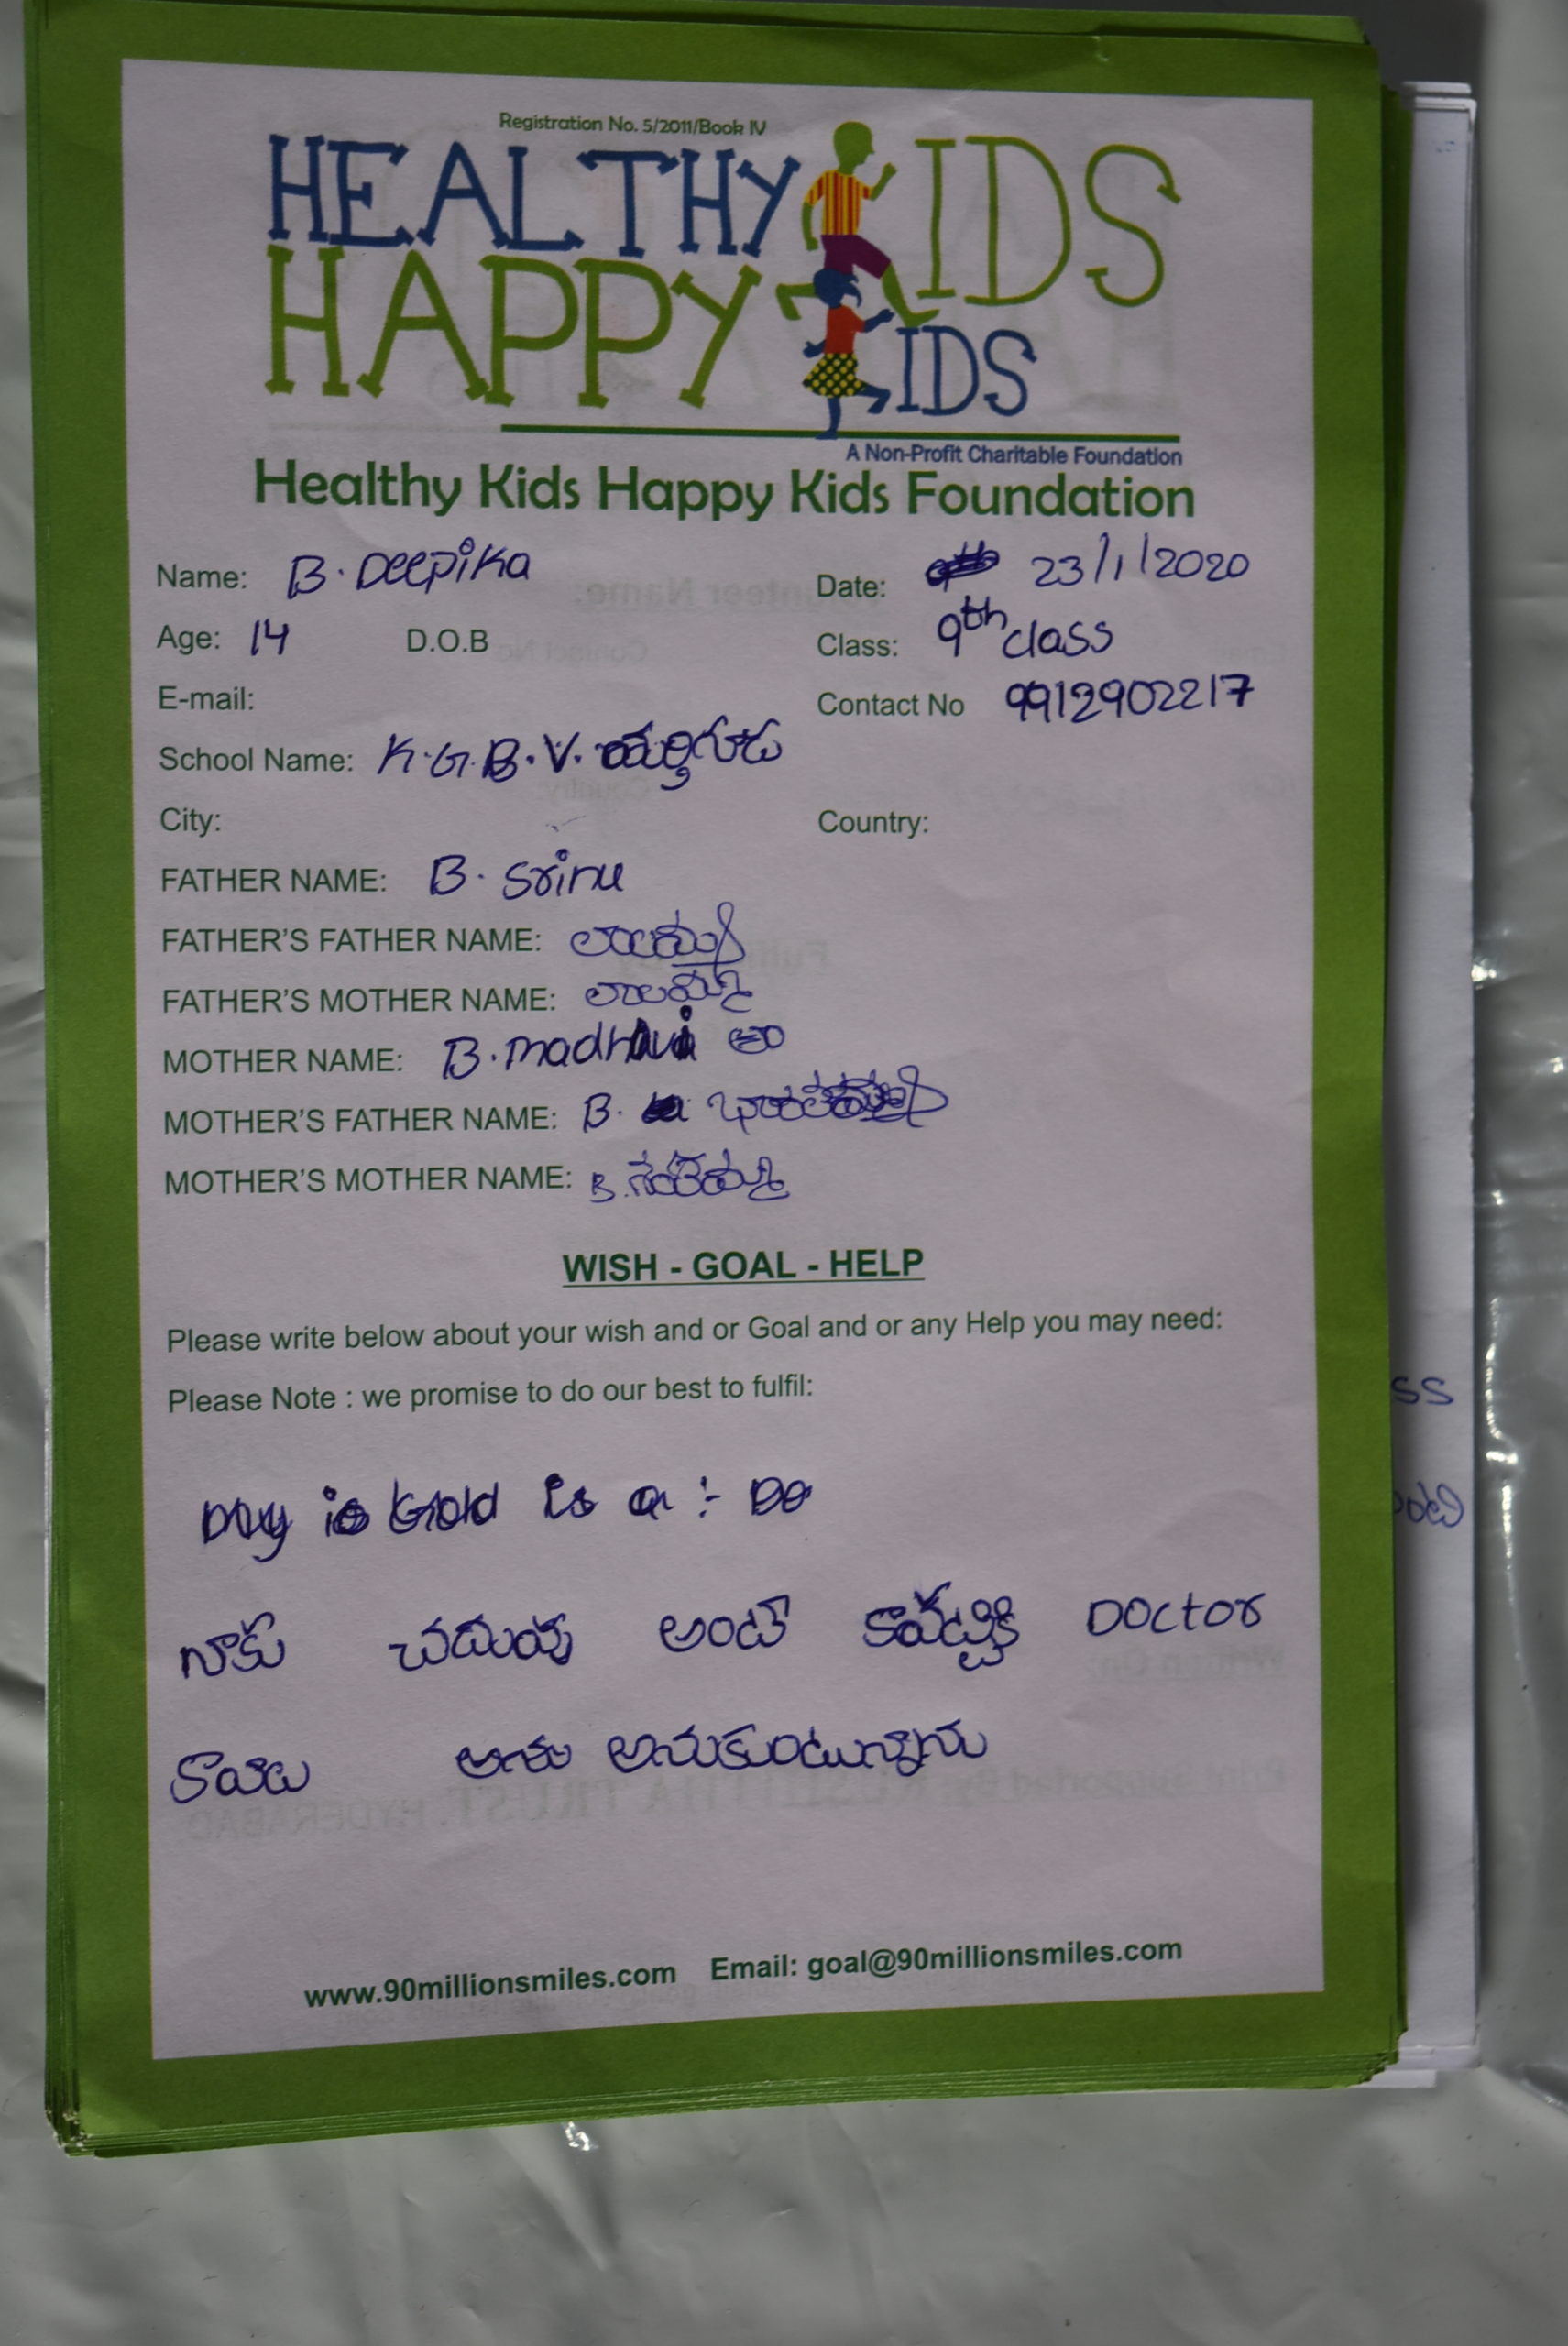 Registration No. 5/2011/Book IV
HEALTHY KIDS
HAPPY KIDS
A Non-Profit Charitable Foundation
Healthy Kids Happy Kids Foundation
Name: B. Deepika Date: 23/1/2020
Age: 14 D.O.B Class: 9th class
E-mail: Contact No 9912902217
School Name: K.G.B.V.
City: Country:
FATHER NAME: B. Srinu
FATHER'S FATHER NAME:
FATHER'S MOTHER NAME: లాలమ్మ
MOTHER NAME: B. madhavi
MOTHER'S FATHER NAME: B.
MOTHER'S MOTHER NAME: B.
WISH - GOAL - HELP
Please write below about your wish and or Goal and or any Help you may need:
Please Note : we promise to do our best to fulfil:
My is Gold is a :- Do
నాకు చదువు అంటే Doctor
కావాలి అనుకుంటున్నాను
www.90millionsmiles.com Email: goal@90millionsmiles.com
ss